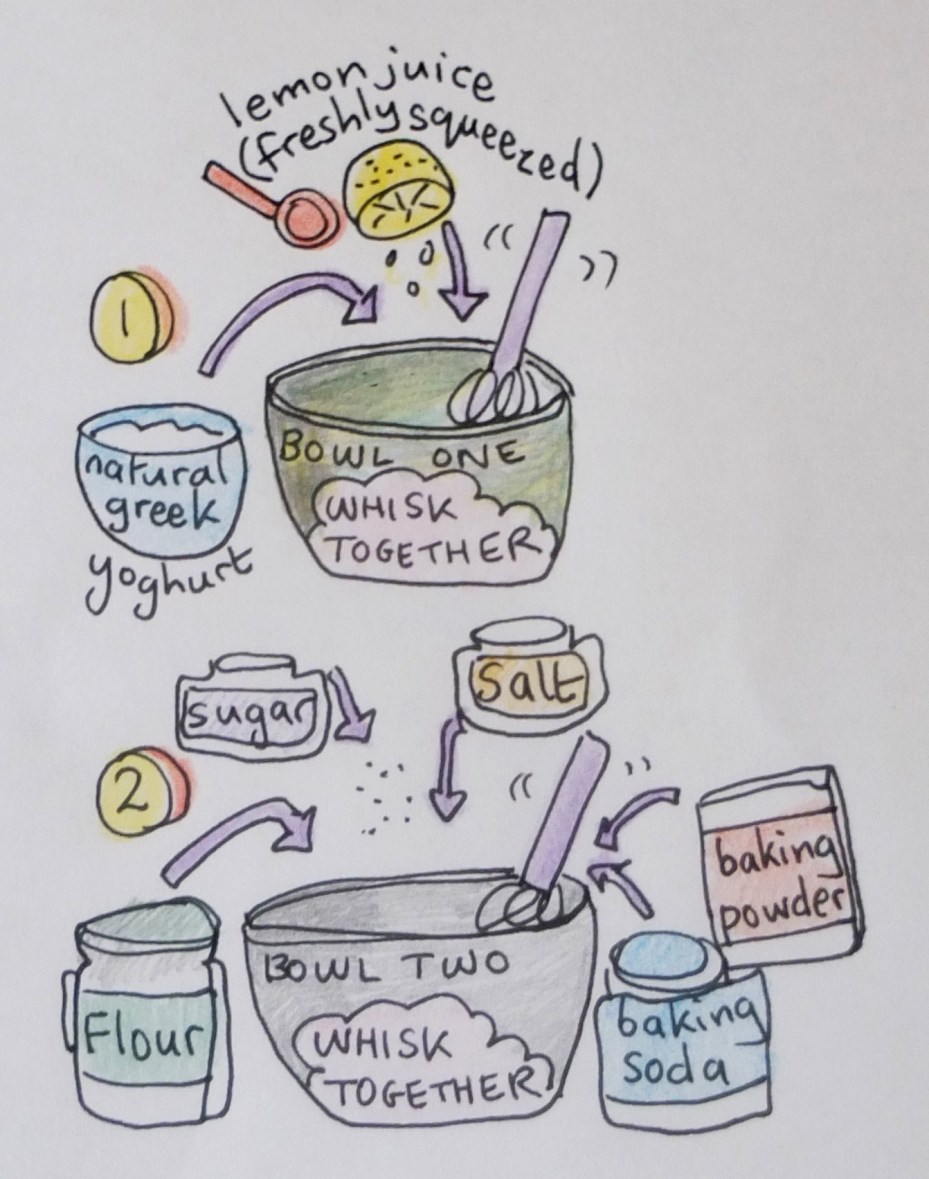 lemon juice
(freshly squeezed)
1
natural
greek
yoghurt
BOWL ONE
WHISK
TOGETHER
sugar
salt
2
baking
powder
Flour
BOWL TWO
WHISK
TOGETHER
baking
soda